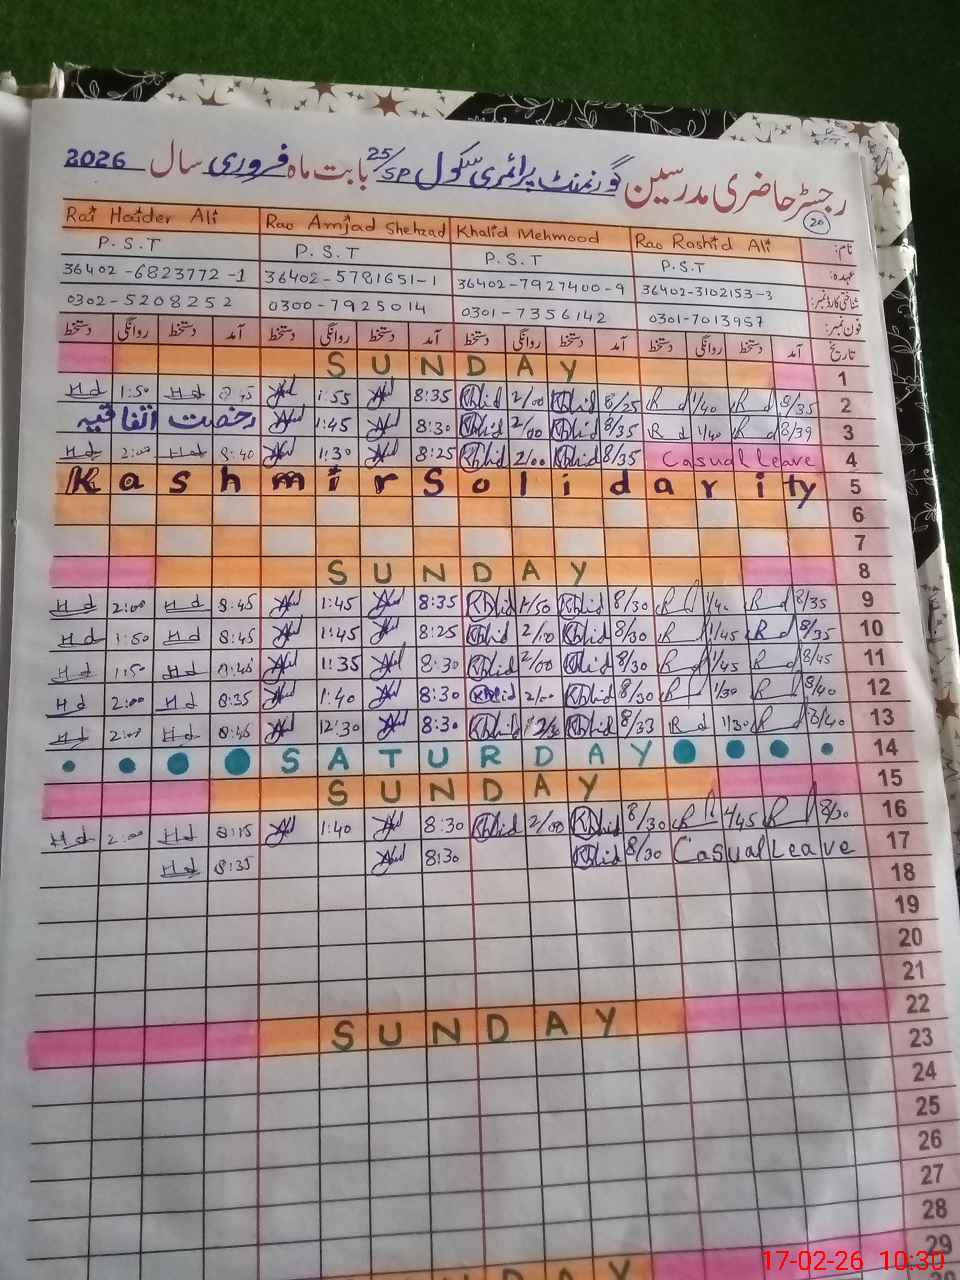 رجسٹر حاضری مدرسین گورنمنٹ پرائمری سکول 25/SP بابت ماہ فروری سال 2026
20
Rai Haider Ali Rao Amjad Shehzad Khalid Mehmood Rao Rashid Ali نام:
P.S.T P.S.T P.S.T P.S.T عہدہ:
36402-6823772-1 36402-5781651-1 36402-7927400-9 36402-3102153-3 شناختی کارڈ نمبر:
0302-5208252 0300-7925014 0301-7356142 0301-7013957 فون نمبر:
دستخط روانگی دستخط آمد دستخط روانگی دستخط آمد دستخط روانگی دستخط آمد دستخط روانگی دستخط آمد تاریخ
SUNDAY 1
Hd 1:50 Hd 8:45 1:55 8:35 Khlid 2/00 Khlid 8/25 Rd 1/40 Rd 8/35 2
رخصت اتفاقیہ 1:45 8:30 Khlid 2/00 Khlid 8/35 Rd 1/40 Rd 8/39 3
Hd 2:00 Hd 8:40 1:30 8:25 Khlid 2/00 Khlid 8/35 Casual Leave 4
Kashmir Solidarity 5
6
7
SUNDAY 8
Hd 2:00 Hd 8:45 1:45 8:35 Khlid Khlid 8/30 Rd 1/40 Rd 8/35 9
Hd 1:50 Hd 8:45 1:45 8:25 Khlid 2/00 Khlid 8/30 Rd 1/45 Rd 8/35 10
Hd 1:50 Hd 8:40 1:35 8:30 Khlid 2/00 Khlid 8/30 Rd 1/45 Rd 8/45 11
Hd 2:00 Hd 8:35 1:40 8:30 Khlid 2/00 Khlid 8/30 Rd 1/30 Rd 8/40 12
Hd 2:00 Hd 8:45 12:30 8:30 Khlid Khlid 8/33 Rd 1/30 Rd 8/40 13
SATURDAY 14
SUNDAY 15
Hd 2:00 Hd 8:15 1:40 8:30 Khlid 2/00 Khlid 8/30 Rd 1/45 Rd 8/30 16
Hd 8:35 8:30 Khlid 8/30 Casual Leave 17
18
19
20
21
22
SUNDAY 23
24
25
26
27
28
29
SUNDAY
17-02-26 10:30